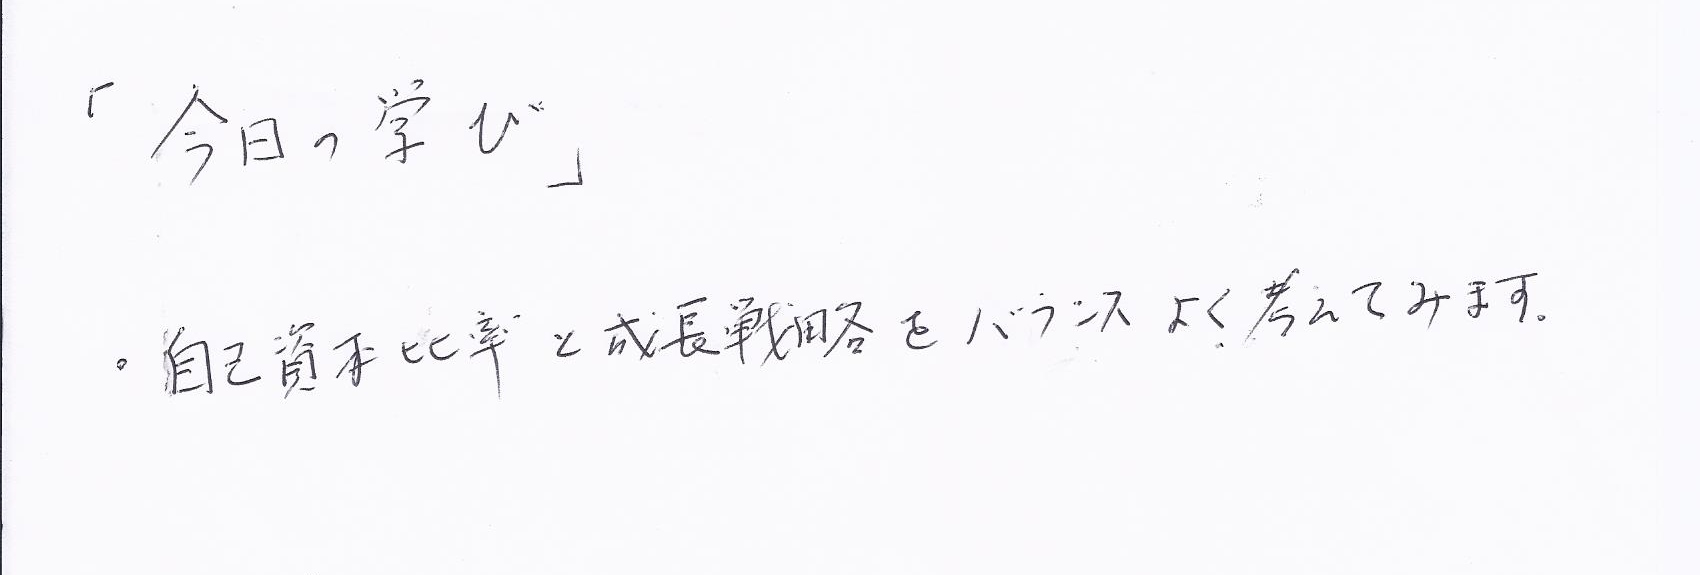 「今日の学び」
。自己資本比率と成長戦略をバランスよく考えてみます。